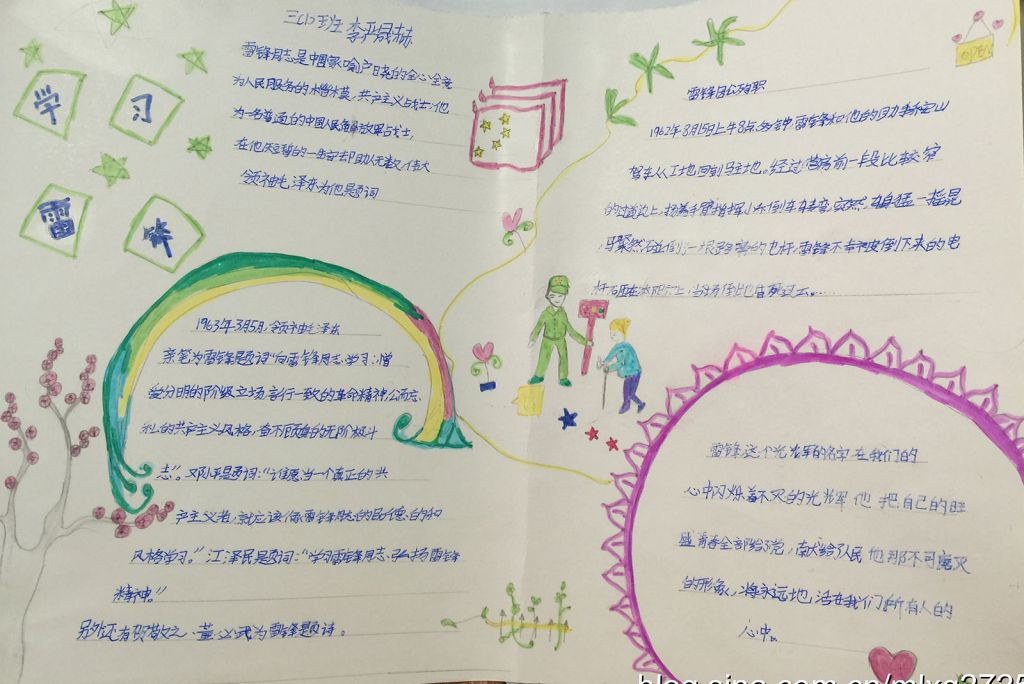 三(1)班 李
学 习
雷 锋
雷锋同志是中国家喻户晓的全心全意
为人民服务的楷模,共产主义战士;他
为一名普通的中国人民解放军战士,
在他短暂的一生中却助人无数,伟大
领袖毛泽东为他题词
1963年3月5月,领袖毛泽东
亲笔为雷锋题词"向雷锋同志学习:憎
爱分明的阶级立场,言行一致的革命精神,公而忘
私的共产主义风格,奋不顾身的无阶级斗
志"。邓小平题词:"谁愿当一个真正的共
产主义者,就应该像雷锋同志的品德、的和
风格学习。"江泽民题词:"学习雷锋同志,弘扬雷锋
精神。"
另外还有贺敬之、董必武为雷锋题诗。
OPEN
雷锋因公殉职
1962年8月15日上午8点多钟,雷锋和他的助手乔安山
驾车从工地回到驻地。经过营房前一段比较窄
的过道边上,扬着手臂指挥小乔倒车转弯,突然,车身猛一摇晃
骤然碰倒了一根的电杆,雷锋不幸被倒下来的电
杆砸在太阳穴上,当场倒地昏死过去……
雷锋这个光辉的名字,在我们的
心中闪烁着不灭的光辉,他把自己的旺
盛青春全部给了党,献给了人民,他那不可磨灭
的形象,将永远地,活在我们所有人的
心中。
blog.sina.com.cn/mlyg2725